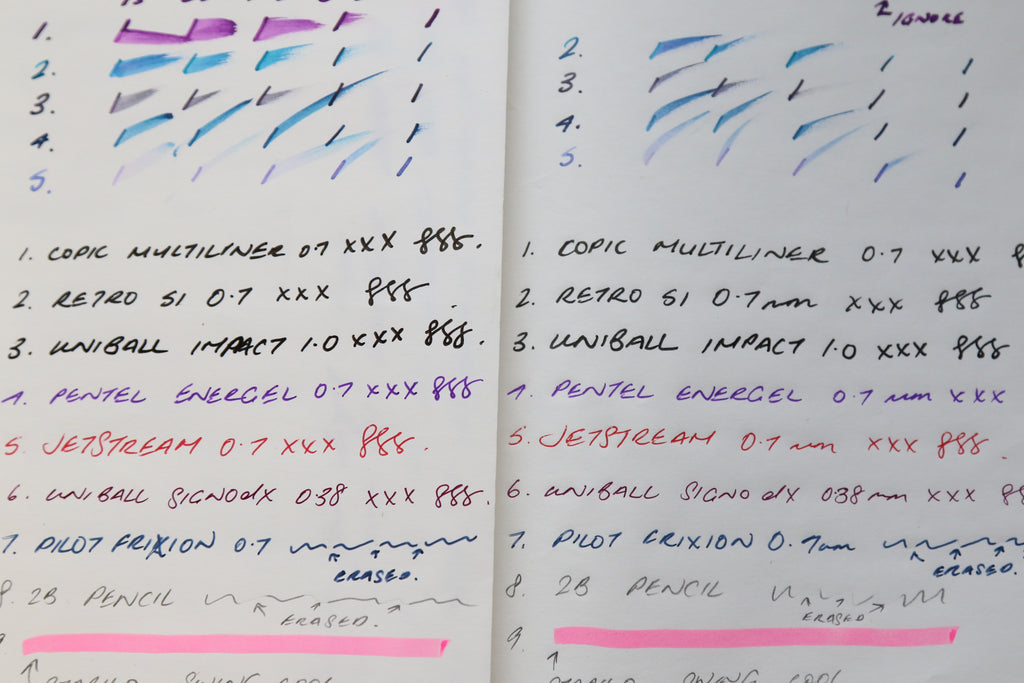 1.
2.
3.
4.
5.
1. COPIC MULTILINER 0.7 XXX fff.
2. RETRO 51 0.7 XXX fff
3. UNIBALL IMPACT 1.0 XXX fff.
4. PENTEL ENERGEL 0.7 XXX fff
5. JETSTREAM 0.7 XXX fff.
6. UNIBALL SIGNO dX 038 XXX fff.
7. PILOT FRIXION 0.7
ERASED.
8. 2B PENCIL
ERASED.
IGNORE
2.
3.
4.
5.
1. COPIC MULTILINER 0.7 XXX
2. RETRO 51 0.7mm XXX fff
3. UNIBALL IMPACT 1.0 XXX fff
4. PENTEL ENERGEL 0.7 mm XXX
5. JETSTREAM 0.7 mm XXX fff.
6. UNIBALL SIGNO dX 038mm XXX
7. PILOT FRIXION 0.7mm
ERASED.
8. 2B PENCIL
ERASED
9.
COOL